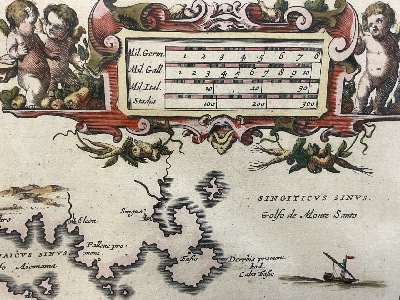 Mil. Germ. 1 2 3 4 5 6 7 8
Mil. Gall. 1 2 3 4 5 6 7 8 9 10
Mil. Ital. 10 20 30
Stadia 100 200 300
SINGITICUS SINUS.
Golfo de Monte Santo
Pallene pro
mont.
Derrhis promont.
hod.
Cabo Falso
AICUS SINUS